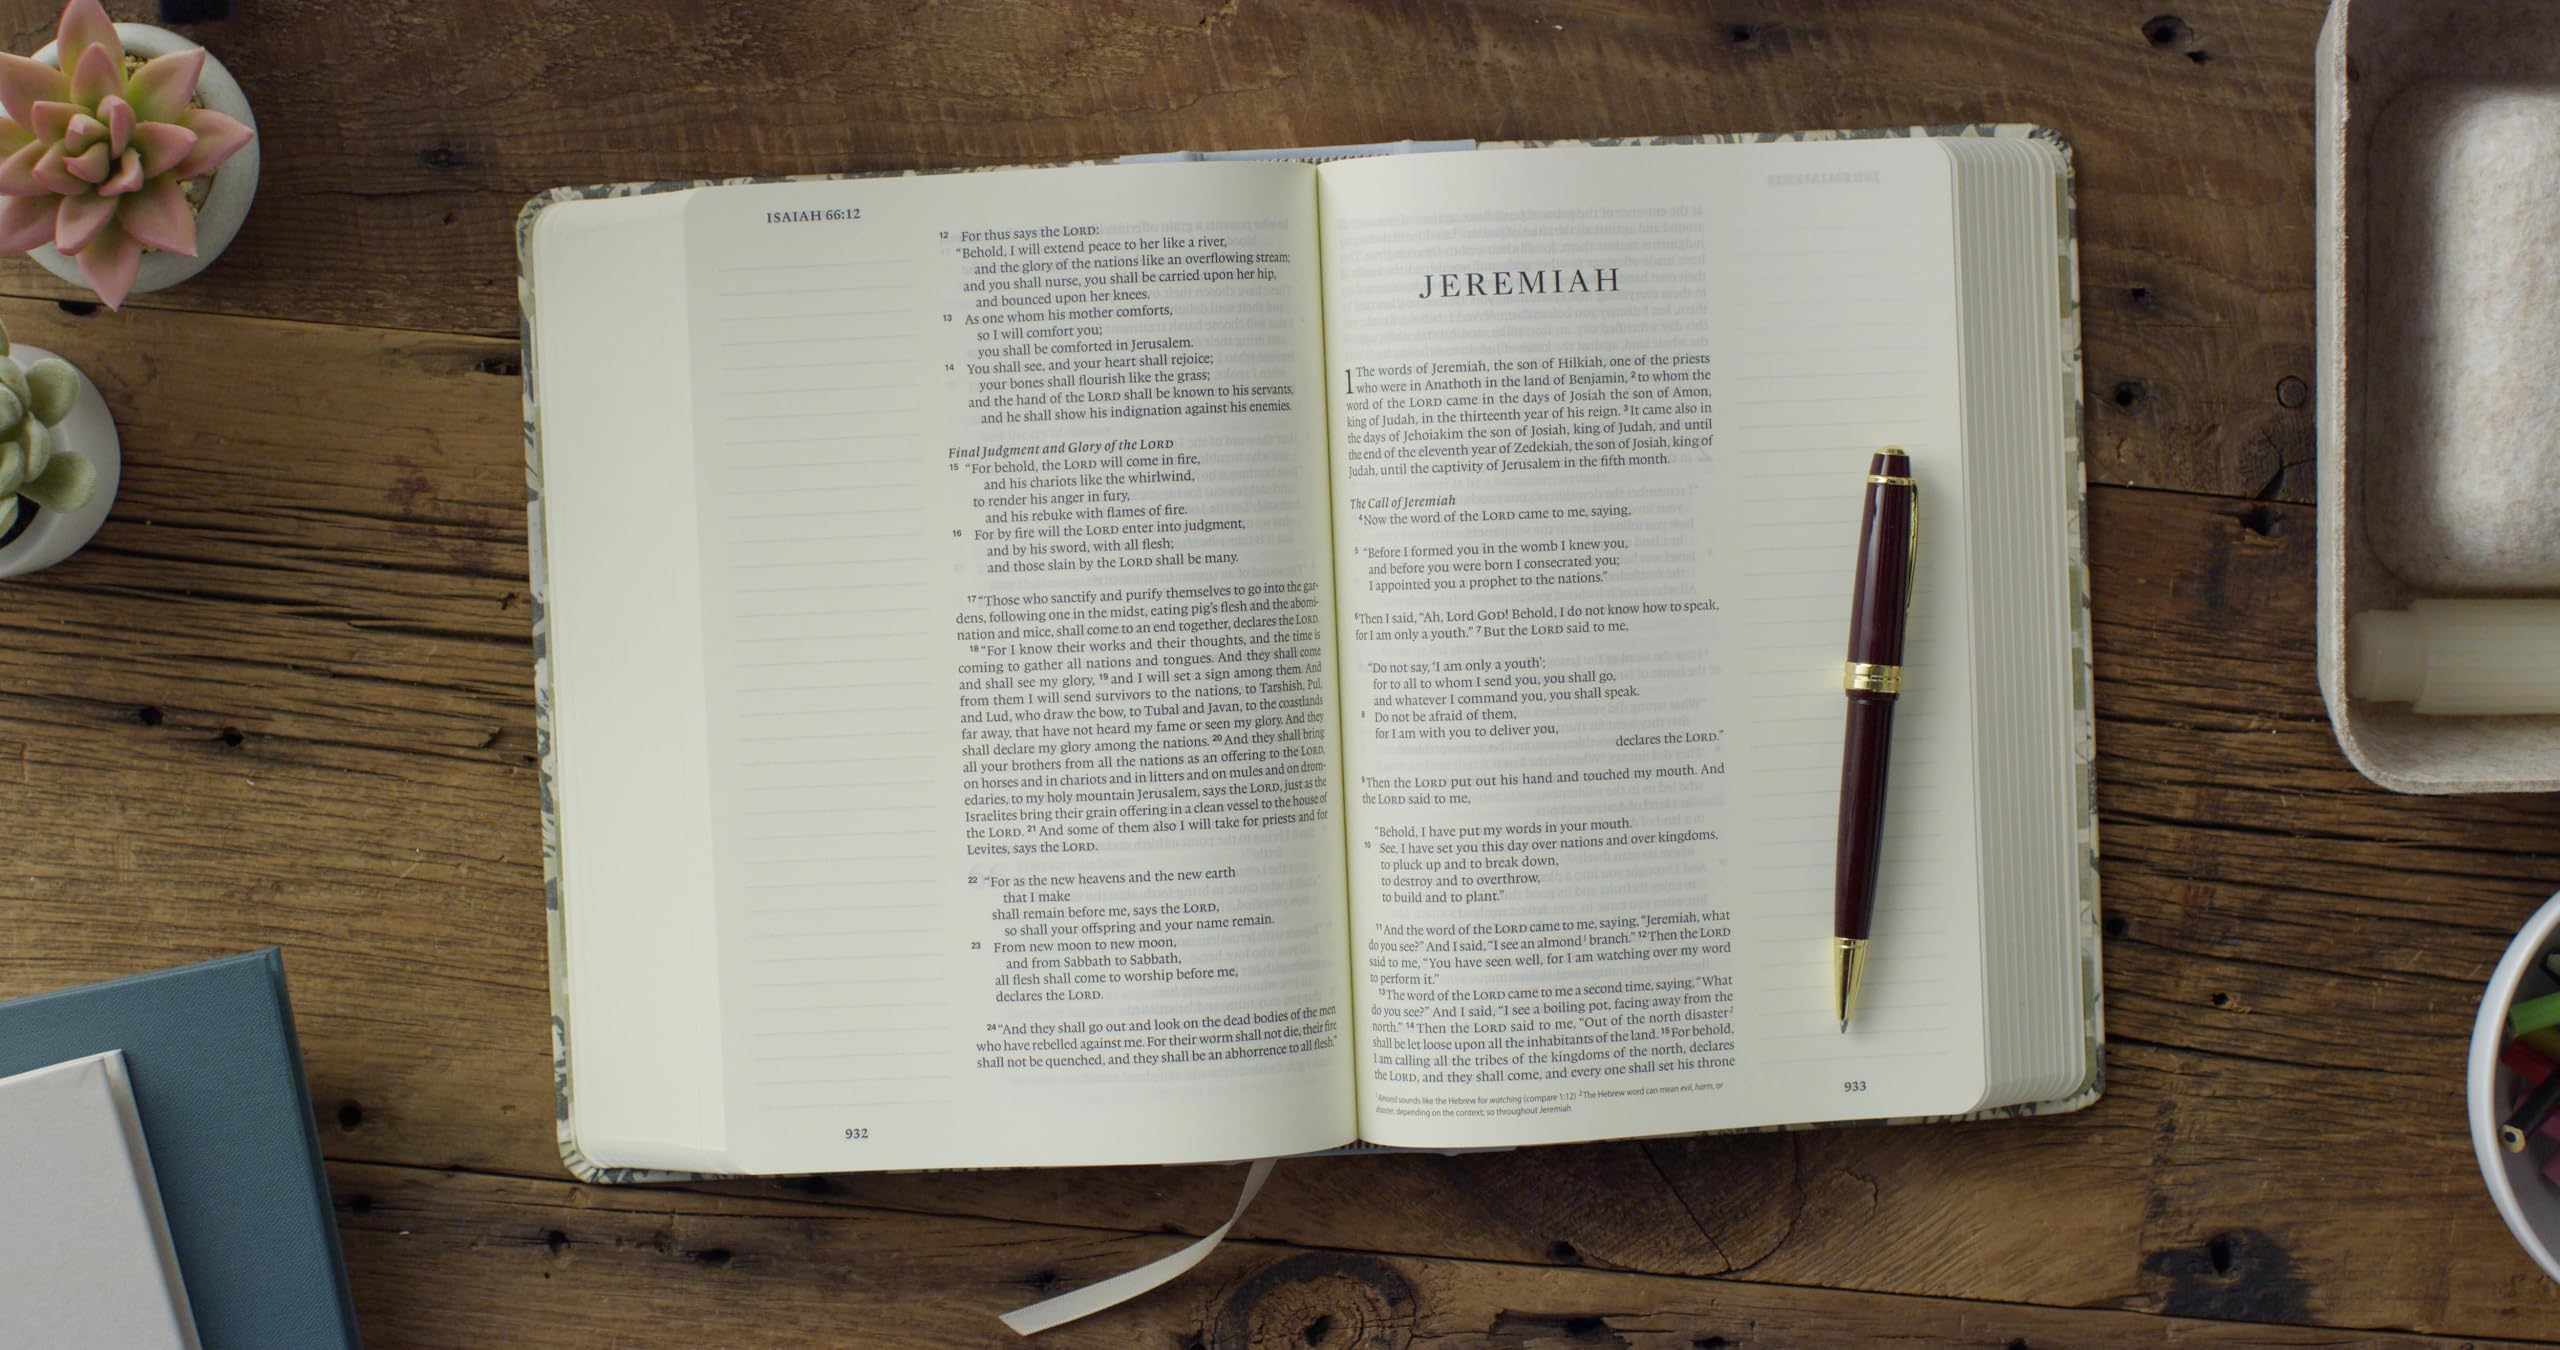 ISAIAH 66:12
12 For thus says the LORD:
“Behold, I will extend peace to her like a river,
and the glory of the nations like an overflowing stream;
and you shall nurse, you shall be carried upon her hip,
and bounced upon her knees.
13 As one whom his mother comforts,
so I will comfort you;
you shall be comforted in Jerusalem.
14 You shall see, and your heart shall rejoice;
your bones shall flourish like the grass;
and the hand of the LORD shall be known to his servants,
and he shall show his indignation against his enemies.
Final Judgment and Glory of the LORD
15 “For behold, the LORD will come in fire,
and his chariots like the whirlwind,
to render his anger in fury,
and his rebuke with flames of fire.
16 For by fire will the LORD enter into judgment,
and by his sword, with all flesh;
and those slain by the LORD shall be many.
17 “Those who sanctify and purify themselves to go into the gar-
dens, following one in the midst, eating pig’s flesh and the abomi-
nation and mice, shall come to an end together, declares the LORD.
18 “For I know their works and their thoughts, and the time is
coming to gather all nations and tongues. And they shall come
and shall see my glory, 19 and I will set a sign among them. And
from them I will send survivors to the nations, to Tarshish, Pul,
and Lud, who draw the bow, to Tubal and Javan, to the coastlands
far away, that have not heard my fame or seen my glory. And they
shall declare my glory among the nations. 20 And they shall bring
all your brothers from all the nations as an offering to the LORD,
on horses and in chariots and in litters and on mules and on drom-
edaries, to my holy mountain Jerusalem, says the LORD, just as the
Israelites bring their grain offering in a clean vessel to the house of
the LORD. 21 And some of them also I will take for priests and for
Levites, says the LORD.
22 “For as the new heavens and the new earth
that I make
shall remain before me, says the LORD,
so shall your offspring and your name remain.
23 From new moon to new moon,
and from Sabbath to Sabbath,
all flesh shall come to worship before me,
declares the LORD.
24 “And they shall go out and look on the dead bodies of the men
who have rebelled against me. For their worm shall not die, their fire
shall not be quenched, and they shall be an abhorrence to all flesh.”
932
JEREMIAH
1 The words of Jeremiah, the son of Hilkiah, one of the priests
who were in Anathoth in the land of Benjamin, 2 to whom the
word of the LORD came in the days of Josiah the son of Amon,
king of Judah, in the thirteenth year of his reign. 3 It came also in
the days of Jehoiakim the son of Josiah, king of Judah, and until
the end of the eleventh year of Zedekiah, the son of Josiah, king of
Judah, until the captivity of Jerusalem in the fifth month.
The Call of Jeremiah
4 Now the word of the LORD came to me, saying,
5 “Before I formed you in the womb I knew you,
and before you were born I consecrated you;
I appointed you a prophet to the nations.”
6 Then I said, “Ah, Lord GOD! Behold, I do not know how to speak,
for I am only a youth.” 7 But the LORD said to me,
“Do not say, ‘I am only a youth’;
for to all to whom I send you, you shall go,
and whatever I command you, you shall speak.
8 Do not be afraid of them,
for I am with you to deliver you,
declares the LORD.”
9 Then the LORD put out his hand and touched my mouth. And
the LORD said to me,
“Behold, I have put my words in your mouth.
10 See, I have set you this day over nations and over kingdoms,
to pluck up and to break down,
to destroy and to overthrow,
to build and to plant.”
11 And the word of the LORD came to me, saying, “Jeremiah, what
do you see?” And I said, “I see an almond1 branch.” 12 Then the LORD
said to me, “You have seen well, for I am watching over my word
to perform it.”
13 The word of the LORD came to me a second time, saying, “What
do you see?” And I said, “I see a boiling pot, facing away from the
north.” 14 Then the LORD said to me, “Out of the north disaster2
shall be let loose upon all the inhabitants of the land. 15 For behold,
I am calling all the tribes of the kingdoms of the north, declares
the LORD, and they shall come, and every one shall set his throne
1 Almond sounds like the Hebrew for watching (compare 1:12) 2 The Hebrew word can mean evil, harm, or
disaster, depending on the context; so throughout Jeremiah
933